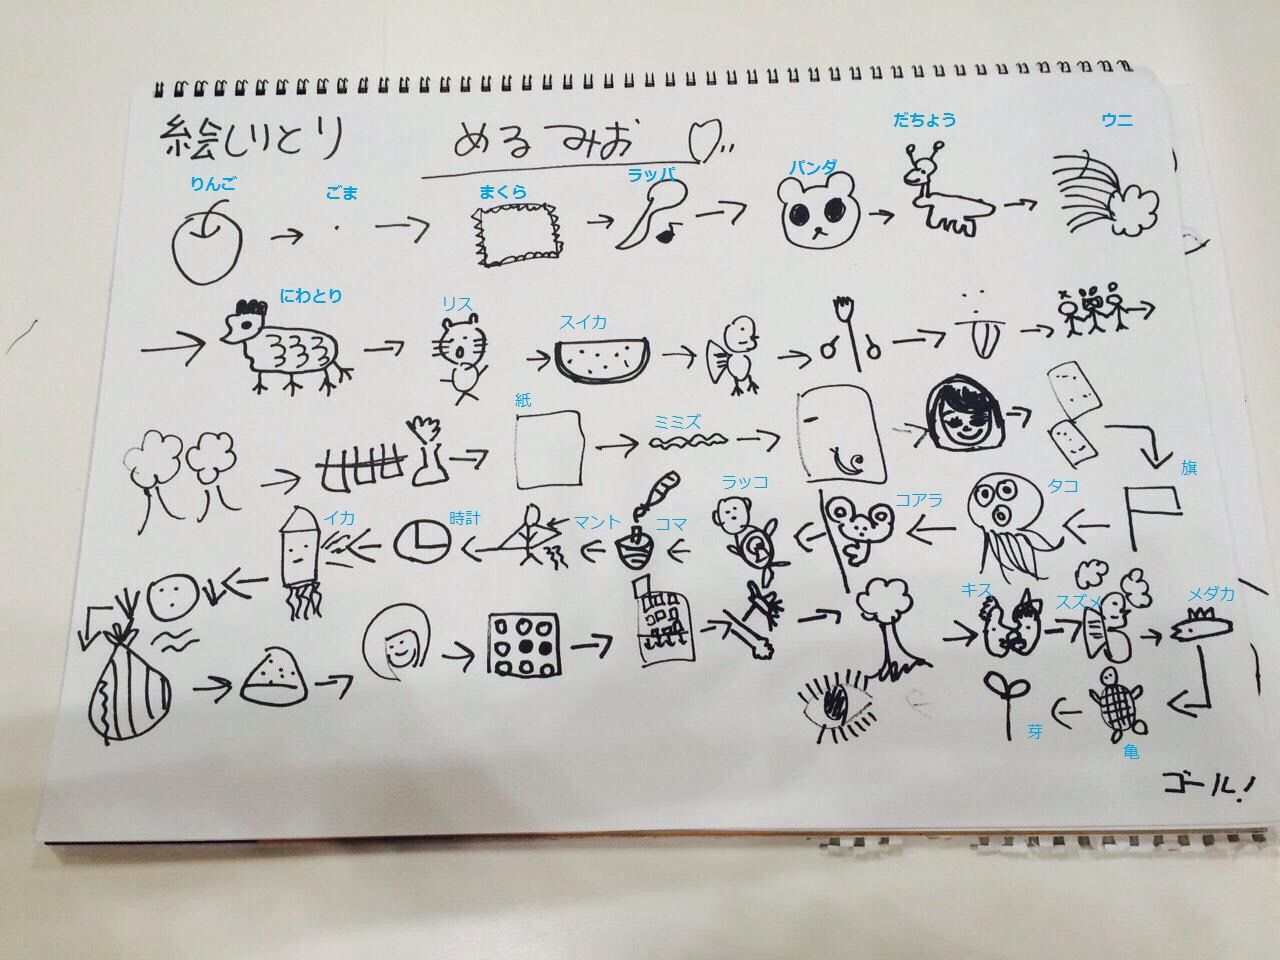 絵しりとり めるみお
りんご ごま まくら ラッパ パンダ だちょう ウニ
にわとり リス スイカ
紙 ミミズ
旗 タコ コアラ ラッコ コマ マント 時計 イカ
キス スズメ メダカ
芽 亀
ゴール!